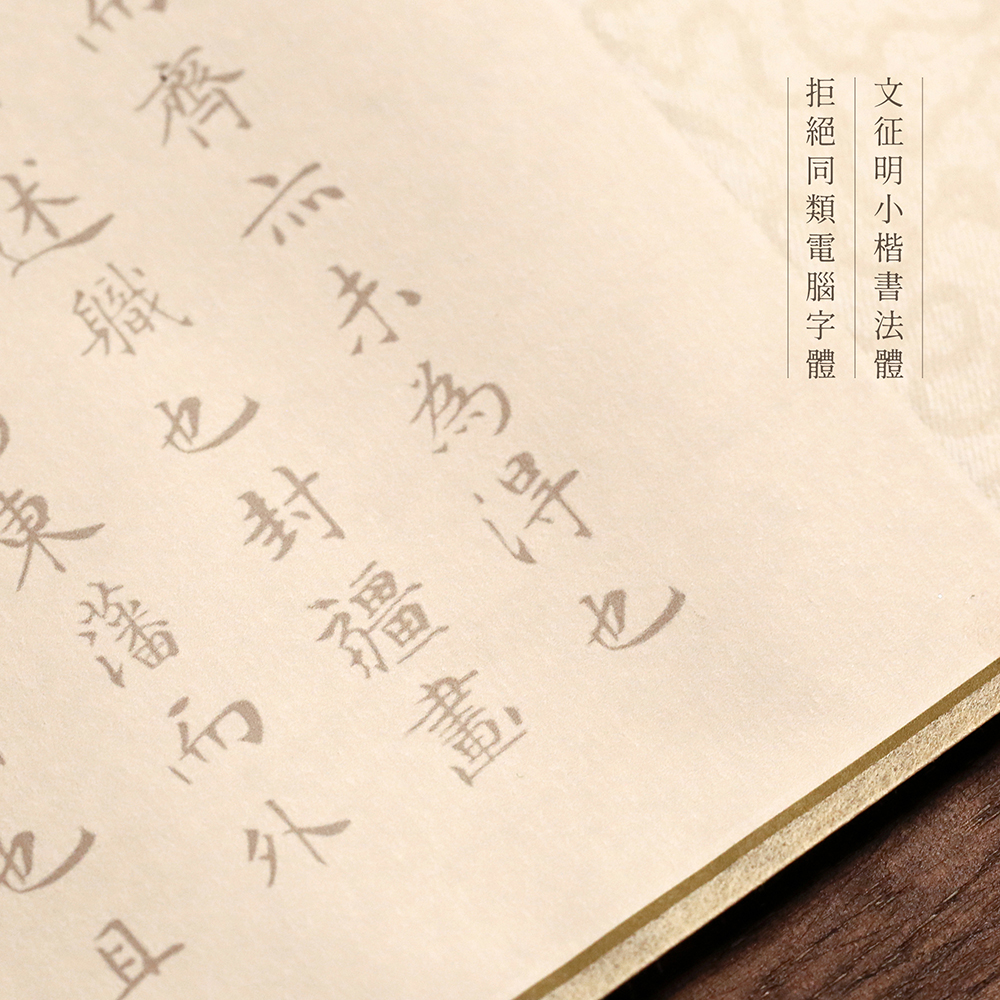 文征明小楷書法體
拒絕同類電腦字體
而齊亦未為得也
述職也封疆畫
東藩而外
也且